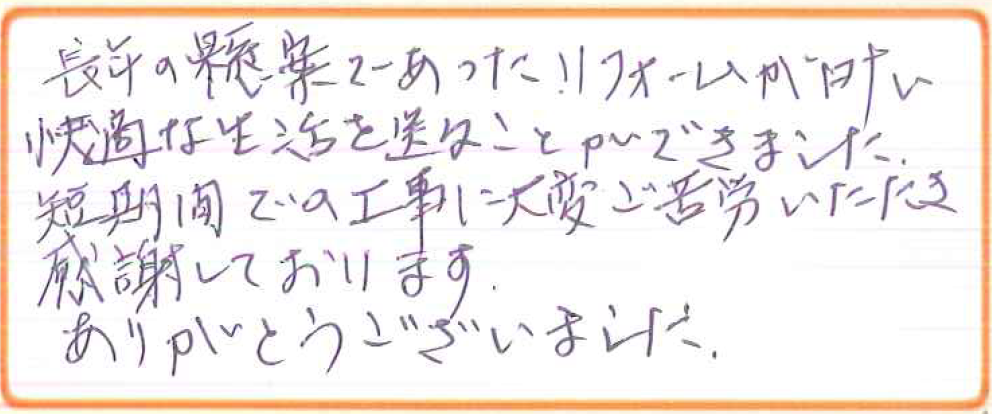 長年の懸案であったリフォームが叶い
快適な生活を送ることができました.
短期間での工事に大変ご苦労いただき
感謝しております.
ありがとうございました.